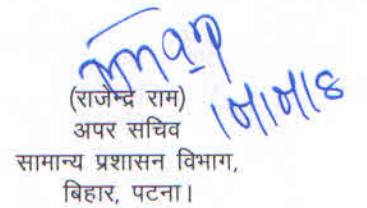 (राजेन्द्र राम)
अपर सचिव
सामान्य प्रशासन विभाग,
बिहार, पटना।